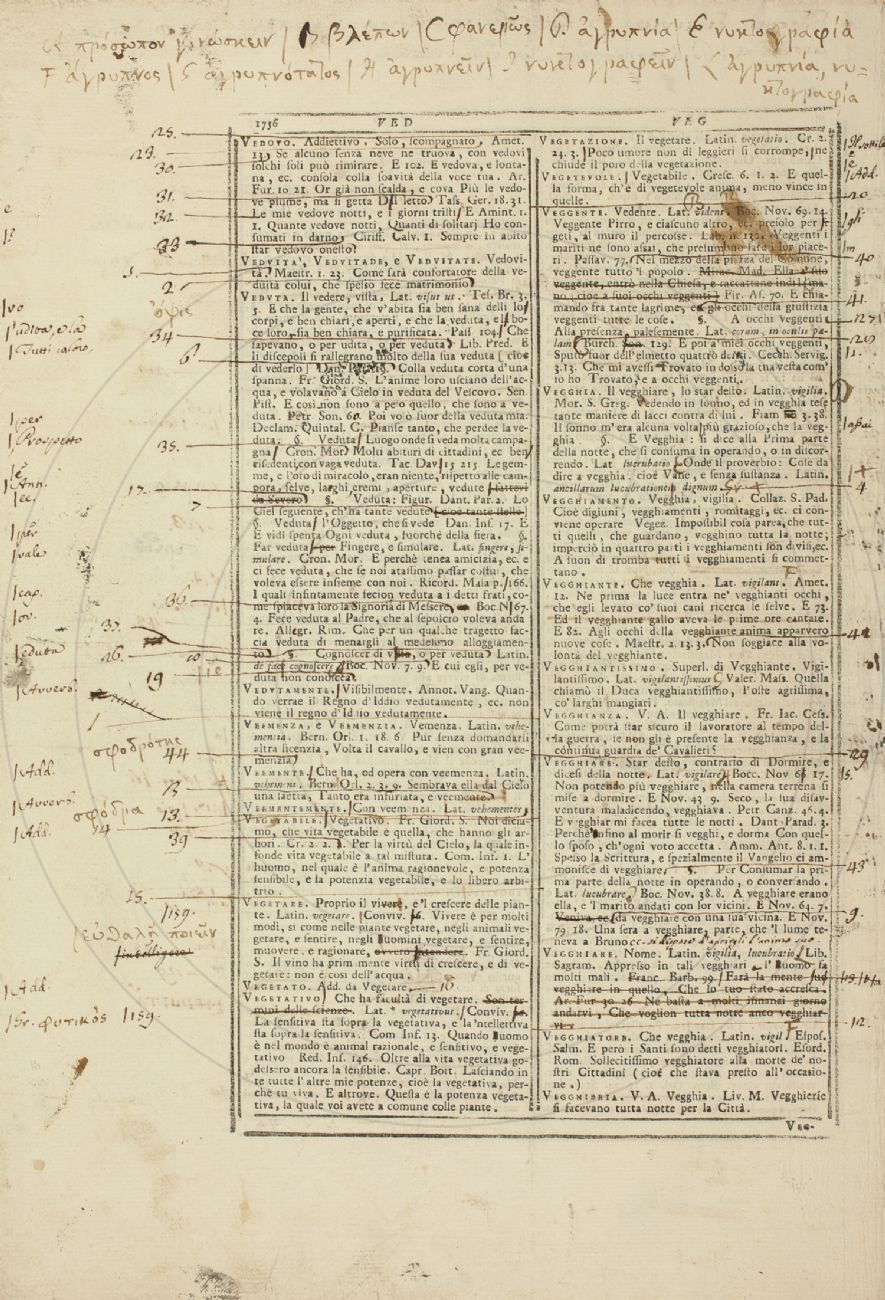 A πρόσωπον γινώσκειν | B βλέπων | C φανερῶς | D. ἀγρυπνία | E νυκτογραφία
F ἄγρυπνος | G ἀγρυπνότατος | H ἀγρυπνεῖν | I νυκτογραφεῖν | L ἀγρυπνία, νυ-
κτογραφία
1736 VED VEG
VEDOVO. Addiettivo. Solo, scompagnato, Amet.
13. Se alcuno senza neve ne truova, con vedovi
solchi soli può rimirare. E 102. E vedova, e lonta-
na, ec. consola colla soavità della voce tua. Ar.
Fur. 10 21. Or già non scalda, e cova Più le vedo-
ve piume, ma si getta Del letto. Tass. Ger. 18. 31.
Le mie vedove notti, e i giorni tristi. E Amint. 1.
1. Quante vedove notti, Quanti dì solitarj Ho con-
sumati in darno. Ciriff. Calv. 1. Sempre in abito
star vedovo onesto.
VEDVITA', VEDVITADE, e VEDVITATE. Vedovi-
tà. Maestr. 1. 23. Come sarà confortatore della ve-
duità colui, che spesso fece matrimonio.
VEDVTA. Il vedere, vista, Lat. visus us. Tes. Br. 3.
5. E che la gente, che v'abita sia ben sana delli lo
corpi, e ben chiari, e aperti, e che la veduta, e boc-
ce loro sia ben chiara, e purificata. Pass. 104. Che
sapevano, o per udita, o per veduta. Lib. Pred. E
li discepoli si rallegrano molto della sua veduta (cioè
di vederlo) Colla veduta corta d'una
spanna. Fr. Giord. S. L'anime loro usciano dell'ac-
qua, e volavano a Cielo in veduta del Vescovo. Sen.
Pist. E così non sono a però quello, che sono a ve-
duta. Petr. Son. 60. Poi volò fuor della veduta mia.
Declam. Quintal. C. Pianse tanto, che perdee la ve-
duta. §. Veduta Luogo onde si veda molta campa-
gna Cron. Mor. Molti abituri di cittadini, ec. ben
risedenti, con vaga veduta. Tac. Dav. 15 215 Le gem-
me, e l'oro di miracolo, eran niente, rispetto alle cam-
pora, selve, laghi, eremi, aperture, vedute fattevi
da Severo §. Veduta: Figur. Dant. Par. 2. Lo
Ciel seguente, ch'ha tante vedute (cioè tante stelle)
§. Veduta l'Oggetto, che si vede Dan. Inf. 17. E
E vidi spenta Ogni veduta, fuorchè della fiera. §.
Far veduta per Fingere, e simulare. Lat. fingere, si-
mulare. Cron. Mor. E perchè tenea amicizia, ec. e
ci fece veduta, che se noi atassimo passar costui, che
voleva essere insieme con noi. Ricord. Malsp. 166.
I quali infintamente fecion veduta a i detti frati, co-
me spiaceva loro la Signoria di Messere, Boc N 67.
4. Fece veduta al Padre, che al sepolcro voleva anda
re. Allegr. Rim. Che per un qualche tragetto fac-
cia veduta di menargli al medesimo alloggiamen-
to §. Cognoscer di vista, o per veduta Latin.
de facie cognoscere Boc. Nov. 7. 9. E cui egli, per ve-
duta non conosceva
VEDVTAMENTE. Visibilmente. Annot. Vang. Quan-
do verrae il Regno d'Iddio vedutamente, ec. non
viene il regno d'Iddio vedutamente.
VEEMENZA, e VEMENZIA. Vemenza. Latin. vehe-
mentia. Bern. Orl. 1. 18. 6. Pur senza domandarsi
altra licenzia, Volta il cavallo, e vien con gran vee-
menzia
VEEMENTE. Che ha, od opera con veemenza. Latin.
vehemens. Bern Orl. 2. 3. 9. Sembrava ella dal Cielo
una saetta, Tanto era infuriata, e veemente.
VEEMENTEMENTE. Con veemenza. Lat. vehementer.
VEGETABILE. Vegetativo. Fr. Giord. S. Noi dicia-
mo, che vita vegetabile è quella, che hanno gli ar-
bori. Cr. 2. 2. Per la virtù del Cielo, la quale in-
fonde vita vegetabile a tal mistura. Com. Inf. 1. L'
huomo, nel quale è l'anima ragionevole, e potenza
sensibile, e la potenzia vegetabile, e lo libero arbi-
trio.
VEGETARE. Proprio il vivere, e 'l crescere delle pian-
te. Latin. vegetare. Conviv. 56. Vivere è per molti
modi, sì come nelle piante vegetare, negli animali ve-
getare, e sentire, negli uomini vegetare, e sentire,
muovere, e ragionare, ovvero intendere. Fr. Giord.
S. Il vino ha prim mente virtù di crescere, e di ve-
getare: non è così dell'acqua.
VEGETATO. Add. da Vegetare.
VEGETATIVO Che ha facultà di vegetare. Son ter-
mini delle scienze. Lat. vegetativus. Conviv.
La sensitiva sta sopra la vegetativa, e la 'ntellettiva
sta sopra la sensitiva. Com Inf. 13. Quando uomo
è nel mondo è animal razionale, e sensitivo, e vege-
tativo Red. Ins. 146. Oltre alla vita vegetativa go-
dessero ancora la sensibile. Capr. Bott. Lasciando in
te tutte l'altre mie potenze, cioè la vegetativa, per-
chè tu viva. E altrove. Questa è la potenza vegeta-
tiva, la quale voi avete a comune colle piante.
VEGETAZIONE. Il vegetare. Latin. vegetatio. Cr. 2.
24. 3. Poco umore non di leggieri si corrompe, ne
chiude il poro della vegetazione.
VEGETEVOLE. Vegetabile. Cresc. 6. 1. 2. E quel-
la forma, ch'è di vegetevole anima, meno vince in
quelle.
VEGGENTE. Vedente. Lat. videns. Boc. Nov. 69. 14.
Veggente Pirro, e ciascuno altro, ec. presolo per
geti, al muro il percosse. Lab. n. 130. Veggenti i
mariti ne sono assai, che presumono fare i lor piace-
ri. Passav. 77. Nel mezzo della piazza del Comune,
veggente tutto 'l popolo. Mirac. Mad. Ella a suo
veggente, entrò nella Chiesa, e raccattane indi
no, cioè a suoi occhi veggenti Fir. As. 70. E chia-
mando fra tante lagrime, gli occhi della giustizia
veggenti tutte le cose. §. A occhi veggenti
Alla presenza, palesemente. Lat. coram, in oculis pa-
lam Burch. Son. 129. E poi a miei occhi veggenti,
Sputò fuor dell'elmetto quattro denti. Cecch. Servig.
3. 13. Che mi avessi Trovato in dosso la tua vesta com'
io ho Trovato, e a occhi veggenti.
VEGGHIA. Il vegghiare, lo star desto. Latin. vigilia.
Mor. S. Greg. Vedendo in sonno, ed in vegghia tese
tante maniere di lacci contra di lui. Fiam 3. 38.
Il sonno m'era alcuna volta più grazioso, che la veg-
ghia. §. E Vegghia: si dice alla Prima parte
della notte, che si consuma in operando, o in discor-
rendo. Lat lucubratio Onde il proverbio: Cose da
dire a vegghia. cioè Vane, e senza sustanza. Latin.
ancillarum lucubrationes dignum
VEGGHIAMENTO. Vegghia, vigilia. Collaz. S. Pad.
Cioè digiuni, vegghiamenti, romitaggi, ec. ci con-
viene operare Vegez. Impossibil cosa parea, che tut-
ti quelli, che guardano, vegghino tutta la notte;
imperciò in quattro parti i vegghiamenti son divisi, ec.
A suon di tromba tutti i vegghiamenti si commet-
tano.
VEGGHIANTE. Che vegghia. Lat. vigilans. Amet.
12. Ne prima la luce entra ne' vegghianti occhi,
che egli levato co' suoi cani ricerca le selve. E 73.
Ed il vegghiante gallo aveva le prime ore cantate.
E 82. Agli occhi della vegghiante anima apparvero
nuove cose. Maestr. 2. 13. 3. Non soggiace alla vo-
lontà del vegghiante.
VEGGHIANTISSIMO. Superl. di Vegghiante. Vigi-
lantissimo. Lat. vigilantissimus Valer. Mass. Quella
chiamò il Duca vegghiantissimo, l'oste agrissima,
co' larghi mangiari.
VEGGHIANZA. V. A. Il vegghiare. Fr. Iac. Cess.
Come potrà star sicuro il lavoratore al tempo del-
la guerra, se non gli è presente la vegghianza, e la
continua guardia de' Cavalieri?
VEGGHIARE. Star desto, contrario di Dormire, e
dicesi della notte. Lat. vigilare. Bocc. Nov 65 17.
Non potendo più vegghiare, nella camera terrena si
mise a dormire. E Nov. 43 9. Seco, la sua disav-
ventura maladicendo, vegghiava. Petr Canz. 46. 4.
E vegghiar mi facea tutte le notti. Dant Parad. 3.
Perchè infino al morir si vegghi, e dorma Con quel-
lo sposo, ch'ogni voto accetta. Amm. Ant. 8. 1. 1.
Spesso la Scrittura, e spezialmente il Vangelio ci am-
monisce di vegghiare §. Per Consumar la pri-
ma parte della notte in operando, o conversando.
Lat. lucubrare. Boc Nov. 38. 8. A vegghiare erano
ella, e 'l marito andati con lor vicini. E Nov 64. 7.
Veniva ec. da vegghiare con una sua vicina. E Nov.
79 18. Una sera a vegghiare, parte, che 'l lume te-
neva a Bruno
VEGGHIARE. Nome. Latin. vigilia, lucubratio Lib.
Sagram. Appresso in tali vegghiari, l'uomo fa
molti mali. Franc. Barb. 99. Farà la mente sua
vegghiare in quello, Che lo tuo stato accresca.
Ar. Fur 30 26 Ne basta a molti innanzi giorno
andarvi, Che voglion tutta notte anco vegghiar-
vi
VEGGHIATORE. Che vegghia. Latin. vigil Espos.
Salm. E però i Santi sono detti vegghiatori. Esord.
Rom. Sollecitissimo vegghiatore alla morte de' no-
stri Cittadini (cioè che stava presto all'occasio-
ne.)
VEGGHIERIA. V. A. Vegghia. Liv. M. Vegghierie
si facevano tutta notte per la Città.
VEG-
25.
23.
30.
31.
32.
33
1.
2
ὄψις
34
6
35.
17.
7
36.
37.
26.
19
σφοδρότης
44
13
σφόδρα 13.
39
15.
159.
εὐθαλῆ ποιεῖν
Add.
φυτικὸς 159.
20
40
41.
127
20
4
42
29
43
9.
12.